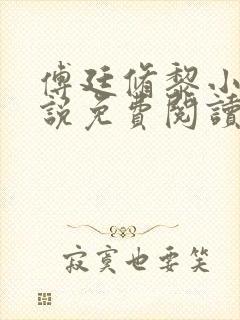 傅廷脩黎小
說免費閱讀
寂寞也要笑